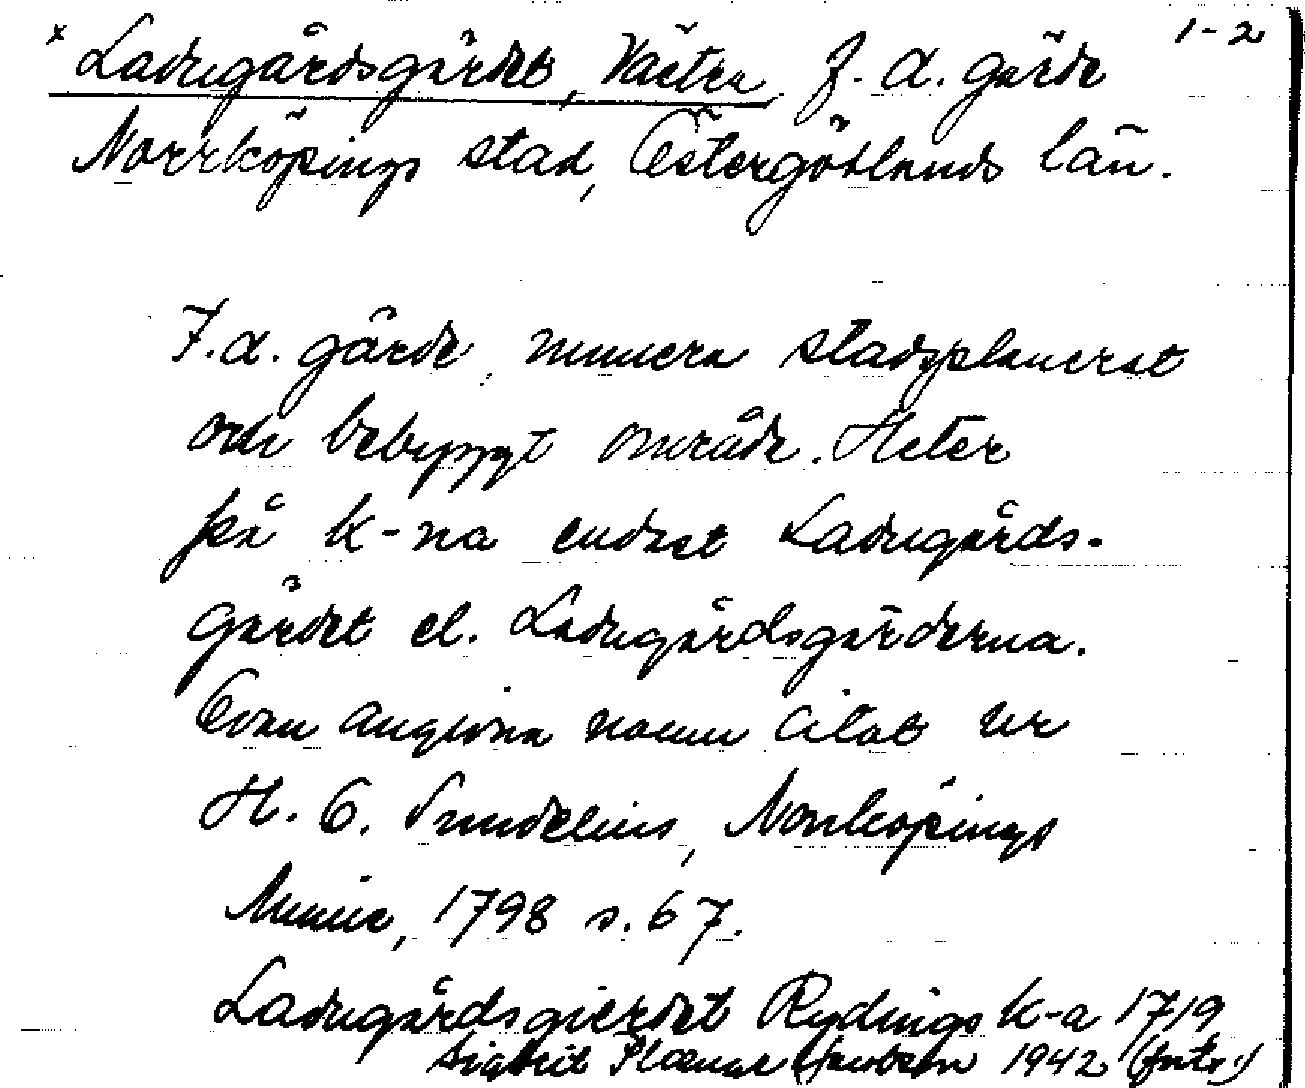 x Ladugårdsgärdet, Västra f. d. gärde 1-2
Norrköpings stad, Östergötlands län.
F.d. gärde, numera stadsplanerat
och bebyggt område. Heter
på k-na endast Ladugårds-
gärdet el. Ladugårdsgärderna.
Ovan angivna namn citat ur
H. O. Sundelius, Norrköpings
Minne, 1798 s. 67.
Ladugårdsgierdet Rydings k-a 1719
Sigbrit Plænge Jacobson 1942